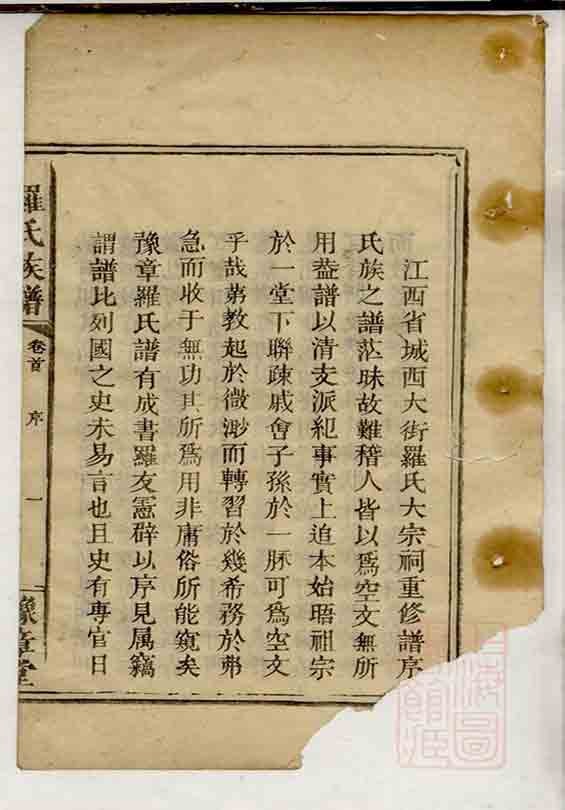 江西省城西大街羅氏大宗祠重修譜序
氏族之譜茫昧故難稽人皆以爲空文無所
用葢譜以清支派紀事實上追本始晤祖宗
於一堂下聯疎戚會子孫於一脉可爲空文
乎哉苐教起於微渺而轉習於幾希務於弗
急而收于無功其所爲用非庸俗所能窺矣
豫章羅氏譜有成書羅友憲辟以序見属竊
謂譜比列國之史未易言也且史有專官日
羅氏族譜
卷首
序
一
豫章堂